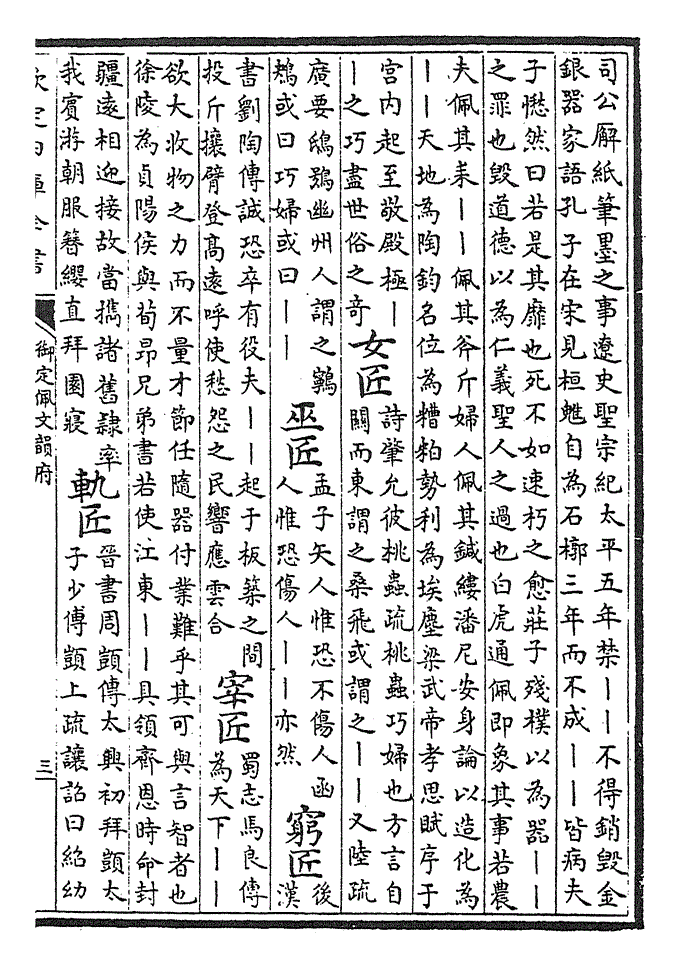 司公廨紙筆墨之事遼史聖宗紀太平五年禁丨丨不得銷毀金
銀器家語孔子在宋見桓魋自為石槨三年而不成丨丨皆病夫
子愀然曰若是其靡也死不如速朽之愈莊子殘樸以為器丨丨
之罪也毀道德以為仁義聖人之過也白虎通佩即象其事若農
夫佩其耒丨丨佩其斧斤婦人佩其鍼縷潘尼安身論以造化為
丨丨天地為陶鈞名位為糟粕勢利為埃塵梁武帝孝思賦序于
宫内起至敬殿極丨
丨之巧盡世俗之奇
女匠
詩肇允彼桃蟲疏桃蟲巧婦也方言自
關而東謂之桑飛或謂之丨丨又陸疏
廣要鴟鴞幽州人謂之鸋
鴂或曰巧婦或曰丨丨
巫匠
孟子矢人惟恐不傷人函
人惟恐傷人丨丨亦然
窮匠
後
漢
書劉陶傳誠恐卒有役夫丨丨起于板築之間
投斤攘臂登髙遠呼使愁怨之民響應雲合
宰匠
蜀志馬良傳
為天下丨丨
欲大收物之力而不量才節任隨器付業難乎其可與言智者也
徐陵為貞陽侯與荀昂兄弟書若使江東丨丨具領齊恩時命封
疆遠相迎接故當攜諸舊隸率
我賓游朝服簪纓直拜園寢
軌匠
晉書周顗傳太興初拜顗太
子少傅顗上疏讓詔曰紹幼
欽定四庫全書
御定佩文韻府
三